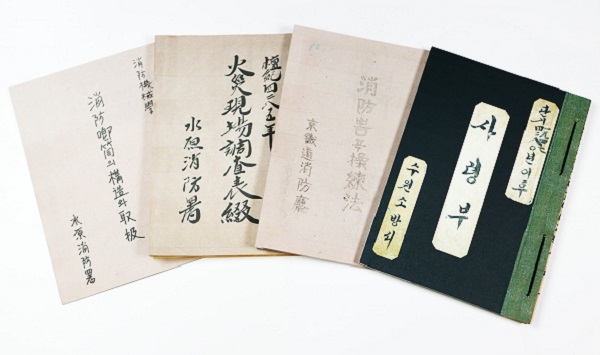 消防機械學
消防喞筒의 構造와 取扱
水原消防署
檀紀四二八五年
火災現場調査表綴
水原消防署
消防 操練法
京畿道消防廳
년이후
사령부
수원소방서